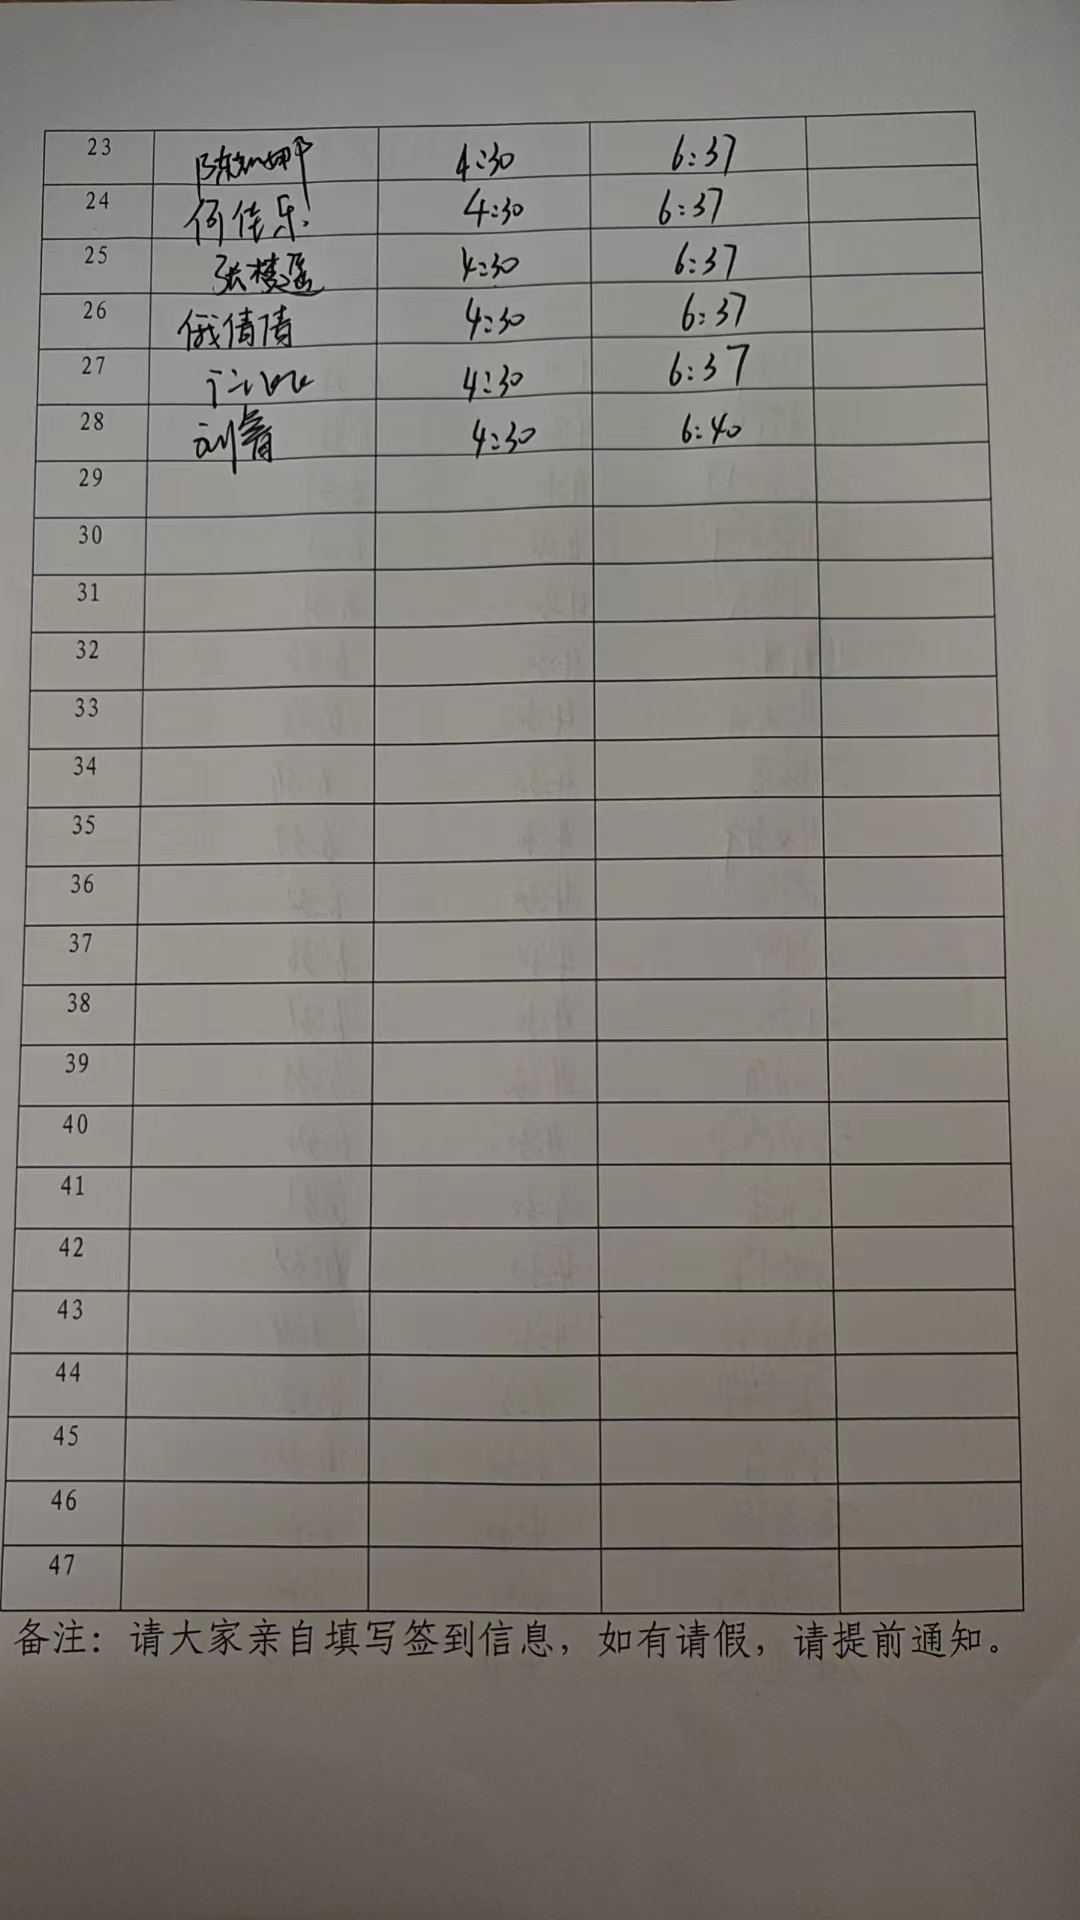 23 陈 娜 4:30 6:37
24 何佳乐 4:30 6:37
25 张楼遥 4:30 6:37
26 俄倩倩 4:30 6:37
27 4:30 6:37
28 刘睿 4:30 6:40
29
30
31
32
33
34
35
36
37
38
39
40
41
42
43
44
45
46
47
备注：请大家亲自填写签到信息，如有请假，请提前通知。